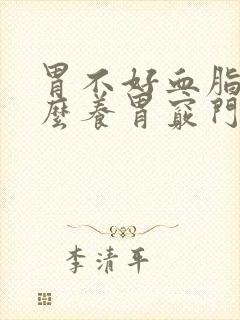 胃不好血脂
麼養胃竅門
李清平